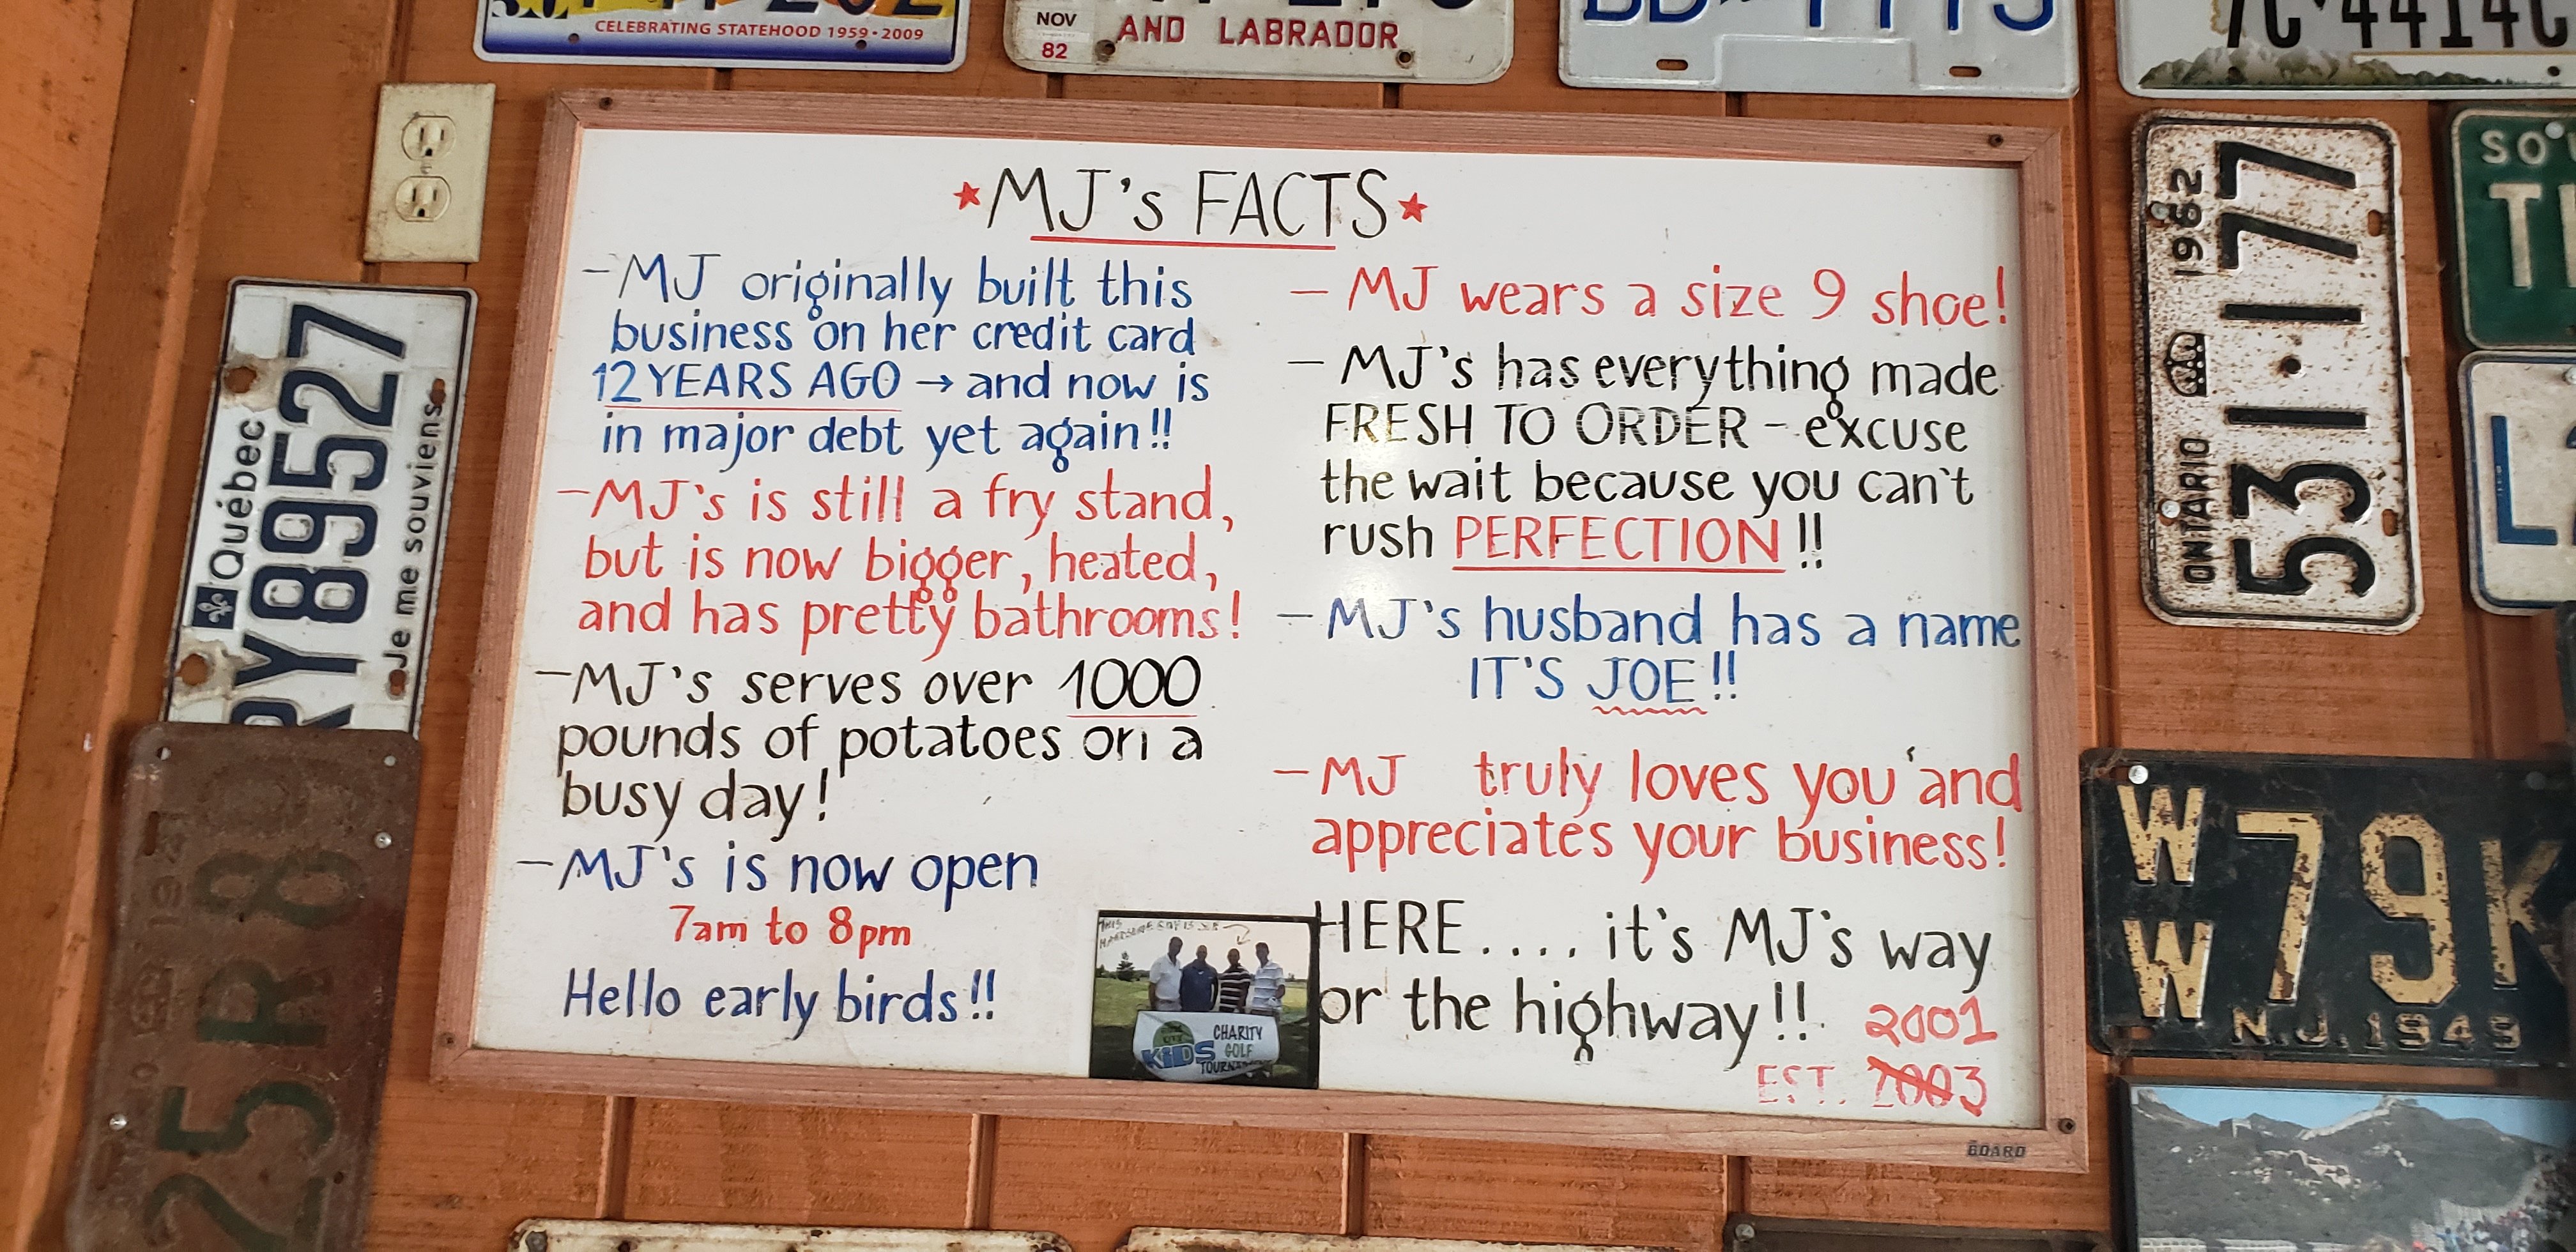 CELEBRATING STATEHOOD 1959 · 2009
NOV
82
AND LABRADOR
Québec
Y89527
Je me souviens
★MJ's FACTS★
-MJ originally built this
business on her credit card
12 YEARS AGO → and now is
in major debt yet again!!
-MJ's is still a fry stand,
but is now bigger, heated,
and has pretty bathrooms!
-MJ's serves over 1000
pounds of potatoes on a
busy day!
-MJ's is now open
7am to 8pm
Hello early birds!!
- MJ wears a size 9 shoe!
- MJ's has everything made
FRESH TO ORDER - excuse
the wait because you can't
rush PERFECTION!!
- MJ's husband has a name
IT'S JOE!!
- MJ truly loves you and
appreciates your business!
HERE.... it's MJ's way
or the highway!!
2001
EST. 2003
KIDS
CHARITY
GOLF
BOARD
ONTARIO 1962
531·177
WW 79K
N.J. 1949
25R8